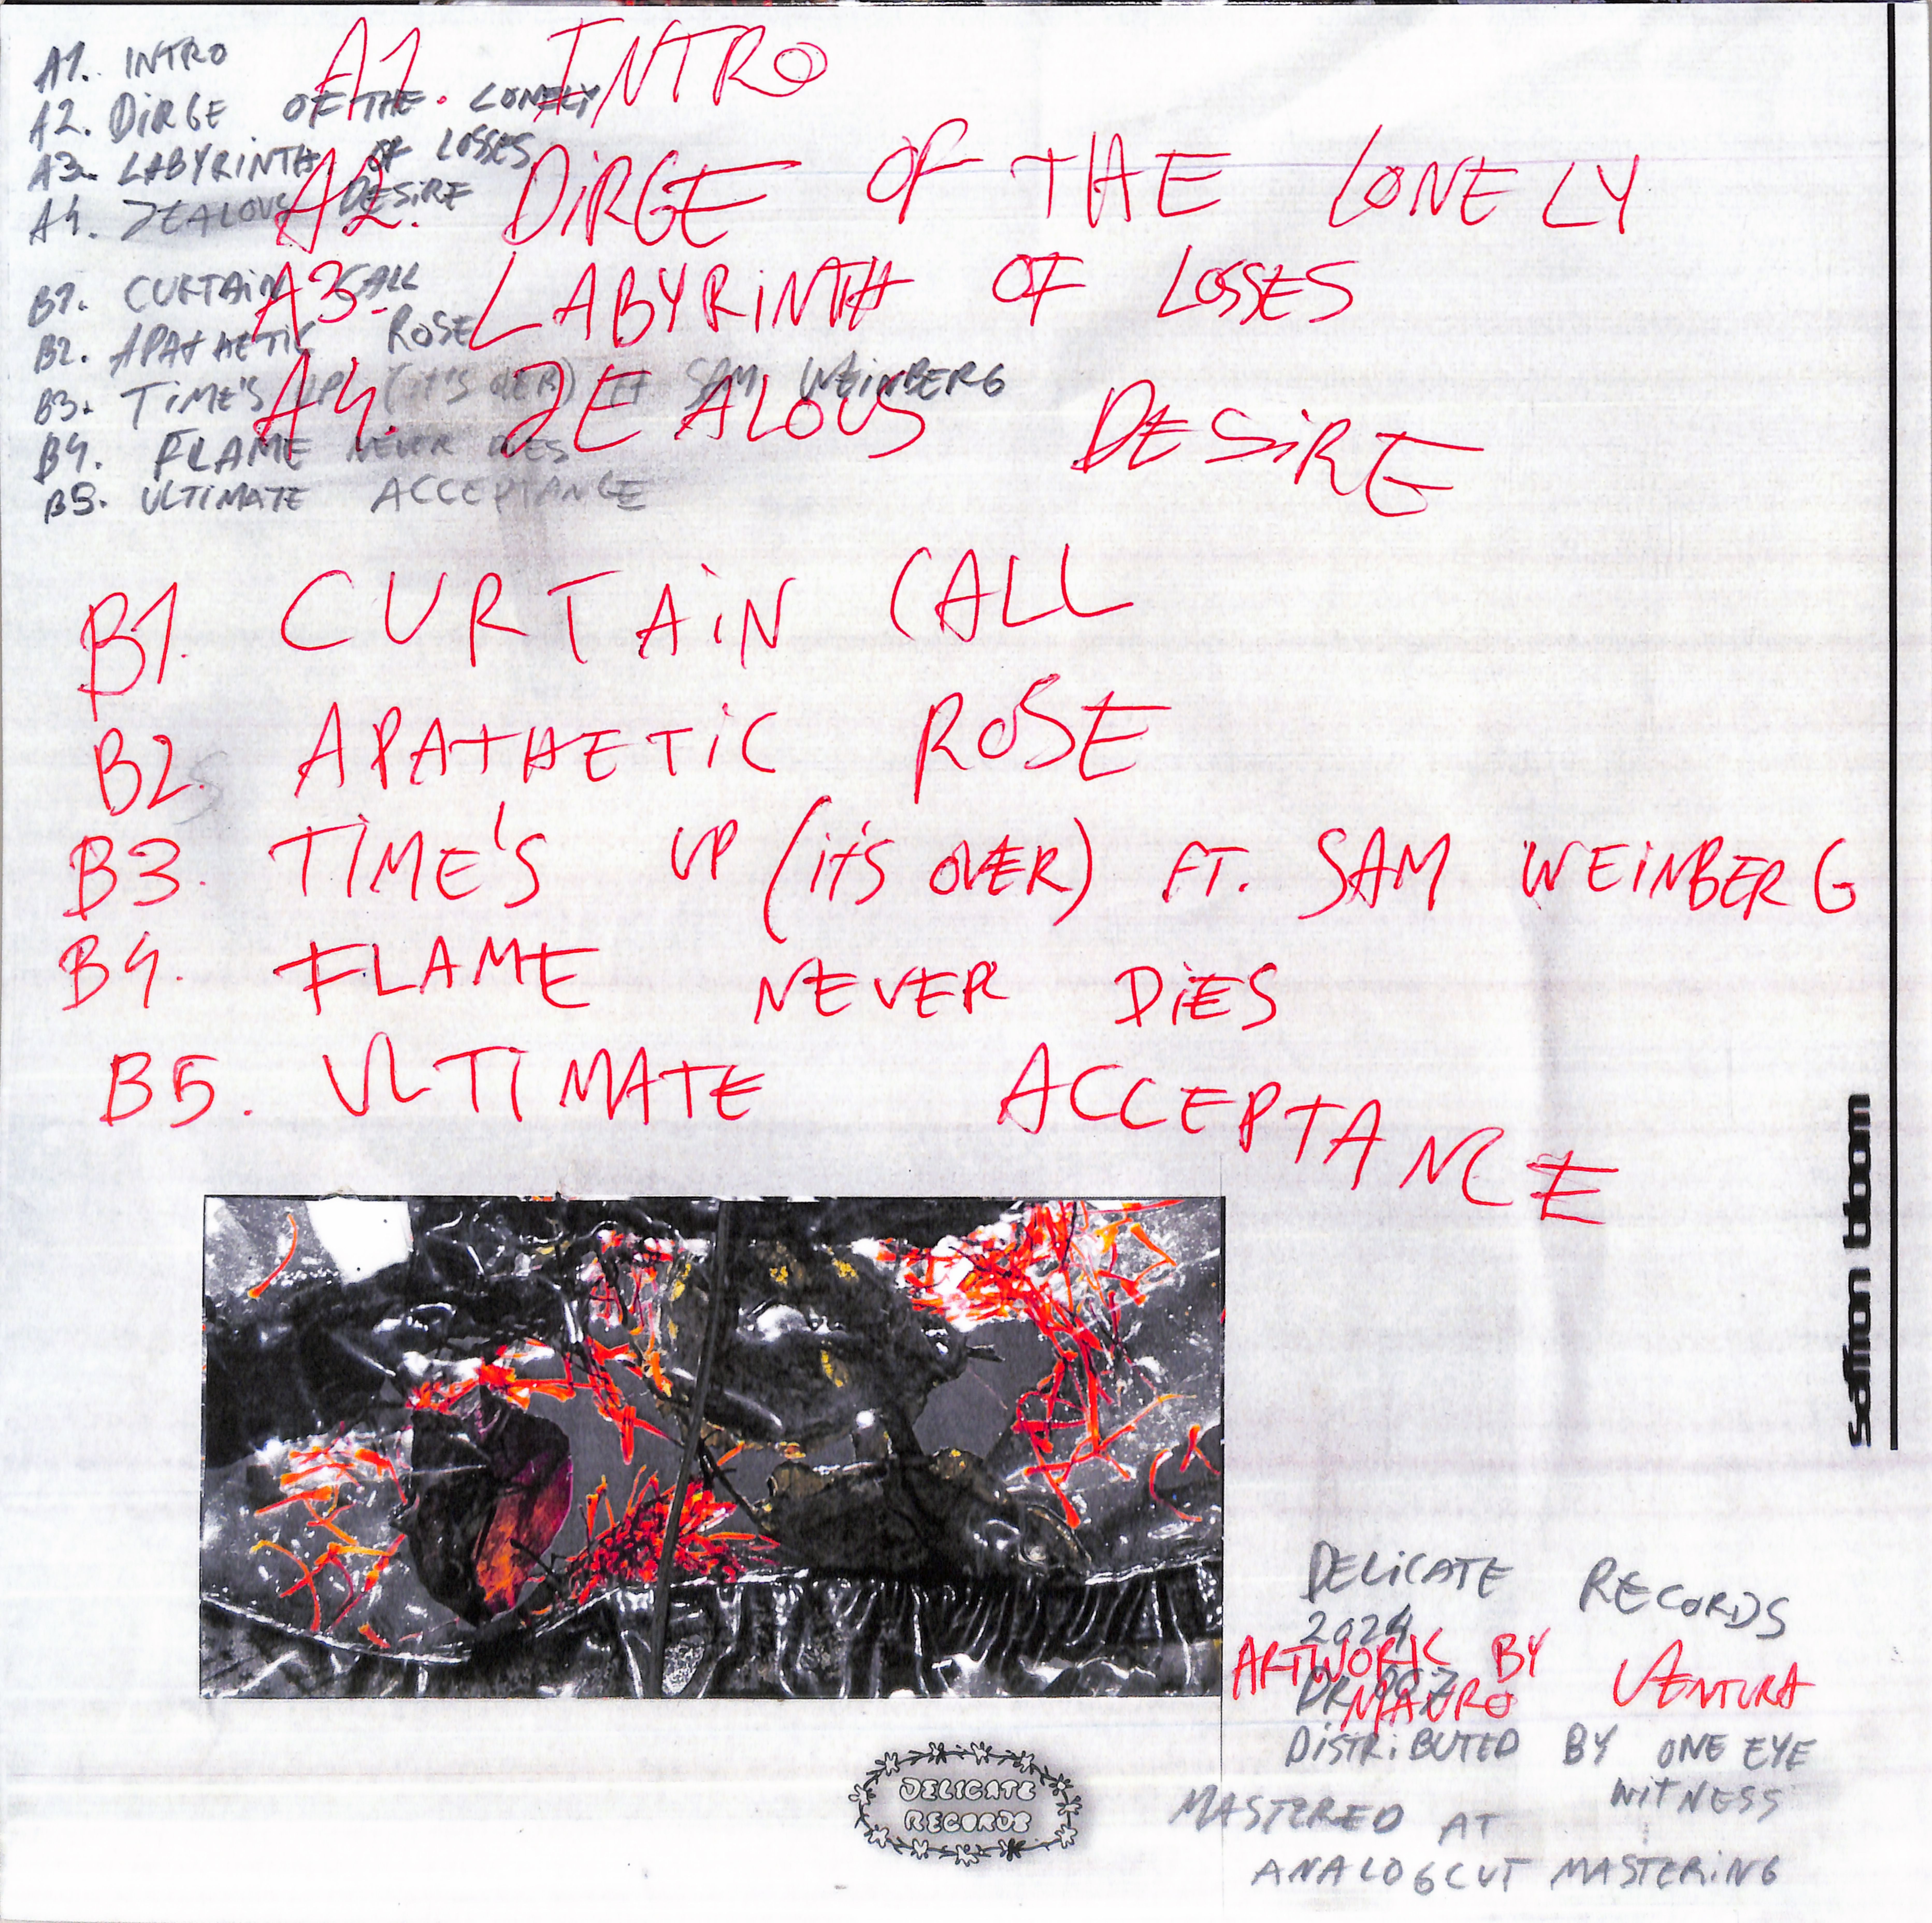 A1. INTRO
A2. DIRGE OF THE LONELY
A3. LABYRINTH OF LOSSES
A4. ZEALOUS DESIRE
B1. CURTAIN CALL
B2. APATHETIC ROSE
B3. TIME'S UP (it's OVER) FT SAM WEINBERG
B4. FLAME NEVER DIES
B5. ULTIMATE ACCEPTANCE
A1. INTRO
A2. DIRGE OF THE LONELY
A3. LABYRINTH OF LOSSES
A4. ZEALOUS DESIRE
B1. CURTAIN CALL
B2. APATHETIC ROSE
B3. TIME'S UP (it's OVER) FT. SAM WEINBERG
B4. FLAME NEVER DIES
B5. ULTIMATE ACCEPTANCE
saffron bloom
DELICATE RECORDS
2024
ARTWORK BY VENTURA
MAURO
DISTRIBUTED BY ONE EYE
WITNESS
MASTERED AT
ANALOGCUT MASTERING
DELICATE
RECORDS